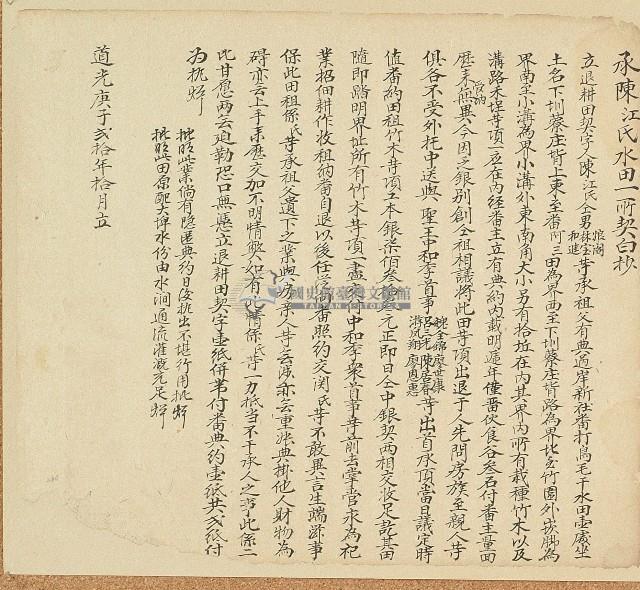 承陳江氏水田一所契白抄
立退耕田契字人陳江氏仝男等承祖父有典過岸新社番打馬毛干水田壹處坐
土名下圳蔡庄背上東至番阿三田為界西至下圳蔡庄背路為界北至竹圍外崁脚為
界南至小溝為界小溝外東南角大小另有拾坵在內其界內所有栽種竹木以及
溝路禾埕等項一应在內經番主立有典約內載明遞年番伙食谷叁石付番主量面
歷來無異今因乏銀別創仝祖相議將此田等項出退于人先問房族至親人等
俱各不受外托中送與聖王中和季首事等出首承頂當日議定時
值番約田租竹木等項工本銀柒佰叁元正即日仝中銀契兩相交收足訖其田
隨即踏明界址所有竹木等項一盡交付中和季衆首事等前去掌管永為祀
業招佃耕作收租納番自退以後任首番照約交関氏等不敢異言生端滋事
保此田租係氏等承祖父遺下之業與房親人等無涉亦無重張典掛他人財物為
碍亦無上手來歷交加不明情弊如有此情係氏等一力抵當不干承人之事此係二
比甘愿兩無廹勒恐口無憑立退耕田契字壹紙併帶付番典約壹紙共弍紙付
為执炤
批明此業倘有隱匿典約日後执出不堪行用批炤
批明此田原配大埤水份由水涧通流灌溉充足炤
道光庚子弍拾年拾月立
國史館臺灣文獻館
TAIWAN HISTORICA